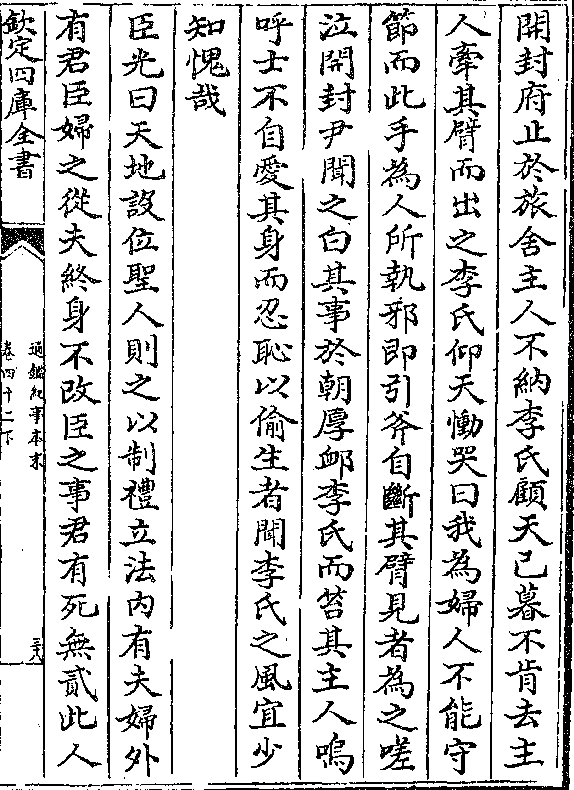 開封府止於旅舍主人不納李氏顧天已暮不肯去主
人牽其臂而出之李氏仰天慟哭曰我為婦人不能守
節而此手為人所執邪即引斧自斷其臂見者為之嗟
泣開封尹聞之白其事於朝厚䘏李氏而笞其主人嗚
呼士不自愛其身而忍恥以偷生者聞李氏之風宜少
知愧哉
臣光曰天地設位聖人則之以制禮立法内有夫婦外
有君臣婦之從夫終身不改臣之事君有死無貳此人
欽定四庫全書
通鑑紀事本末
卷四十二下